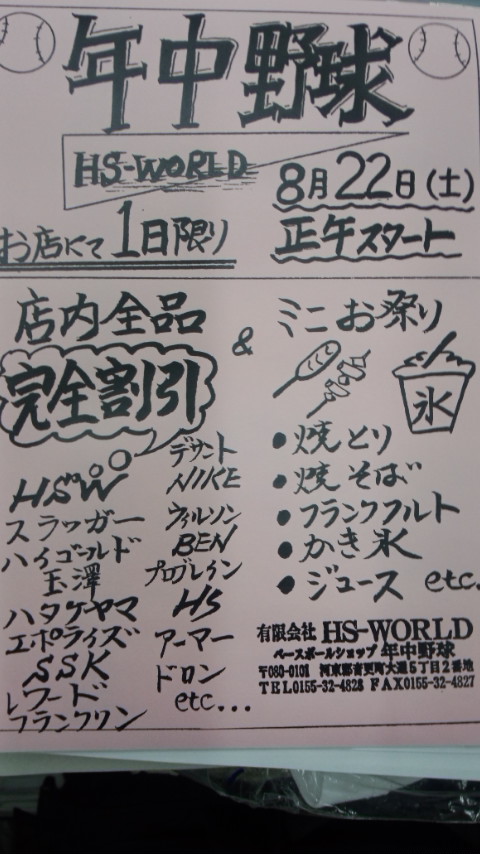 年中野球
HS-WORLD
8月22日(土)
お店にて1日限り
正午スタート
店内全品
完全割引
&
ミニお祭り
氷
・焼とり
・焼そば
・フランクフルト
・かき氷
・ジュース etc.
HSW
スラッガー
ハイゴールド
玉澤
ハタケヤマ
エボライズ
SSK
レワード
フランクリン
デサント
NIKE
ウィルソン
BEN
プロブレイン
HS
アーマー
ドロン
etc...
有限会社 HS-WORLD
ベースボールショップ 年中野球
〒080-0101 河東郡音更町大通5丁目2番地
TEL0155-32-4828 FAX0155-32-4827